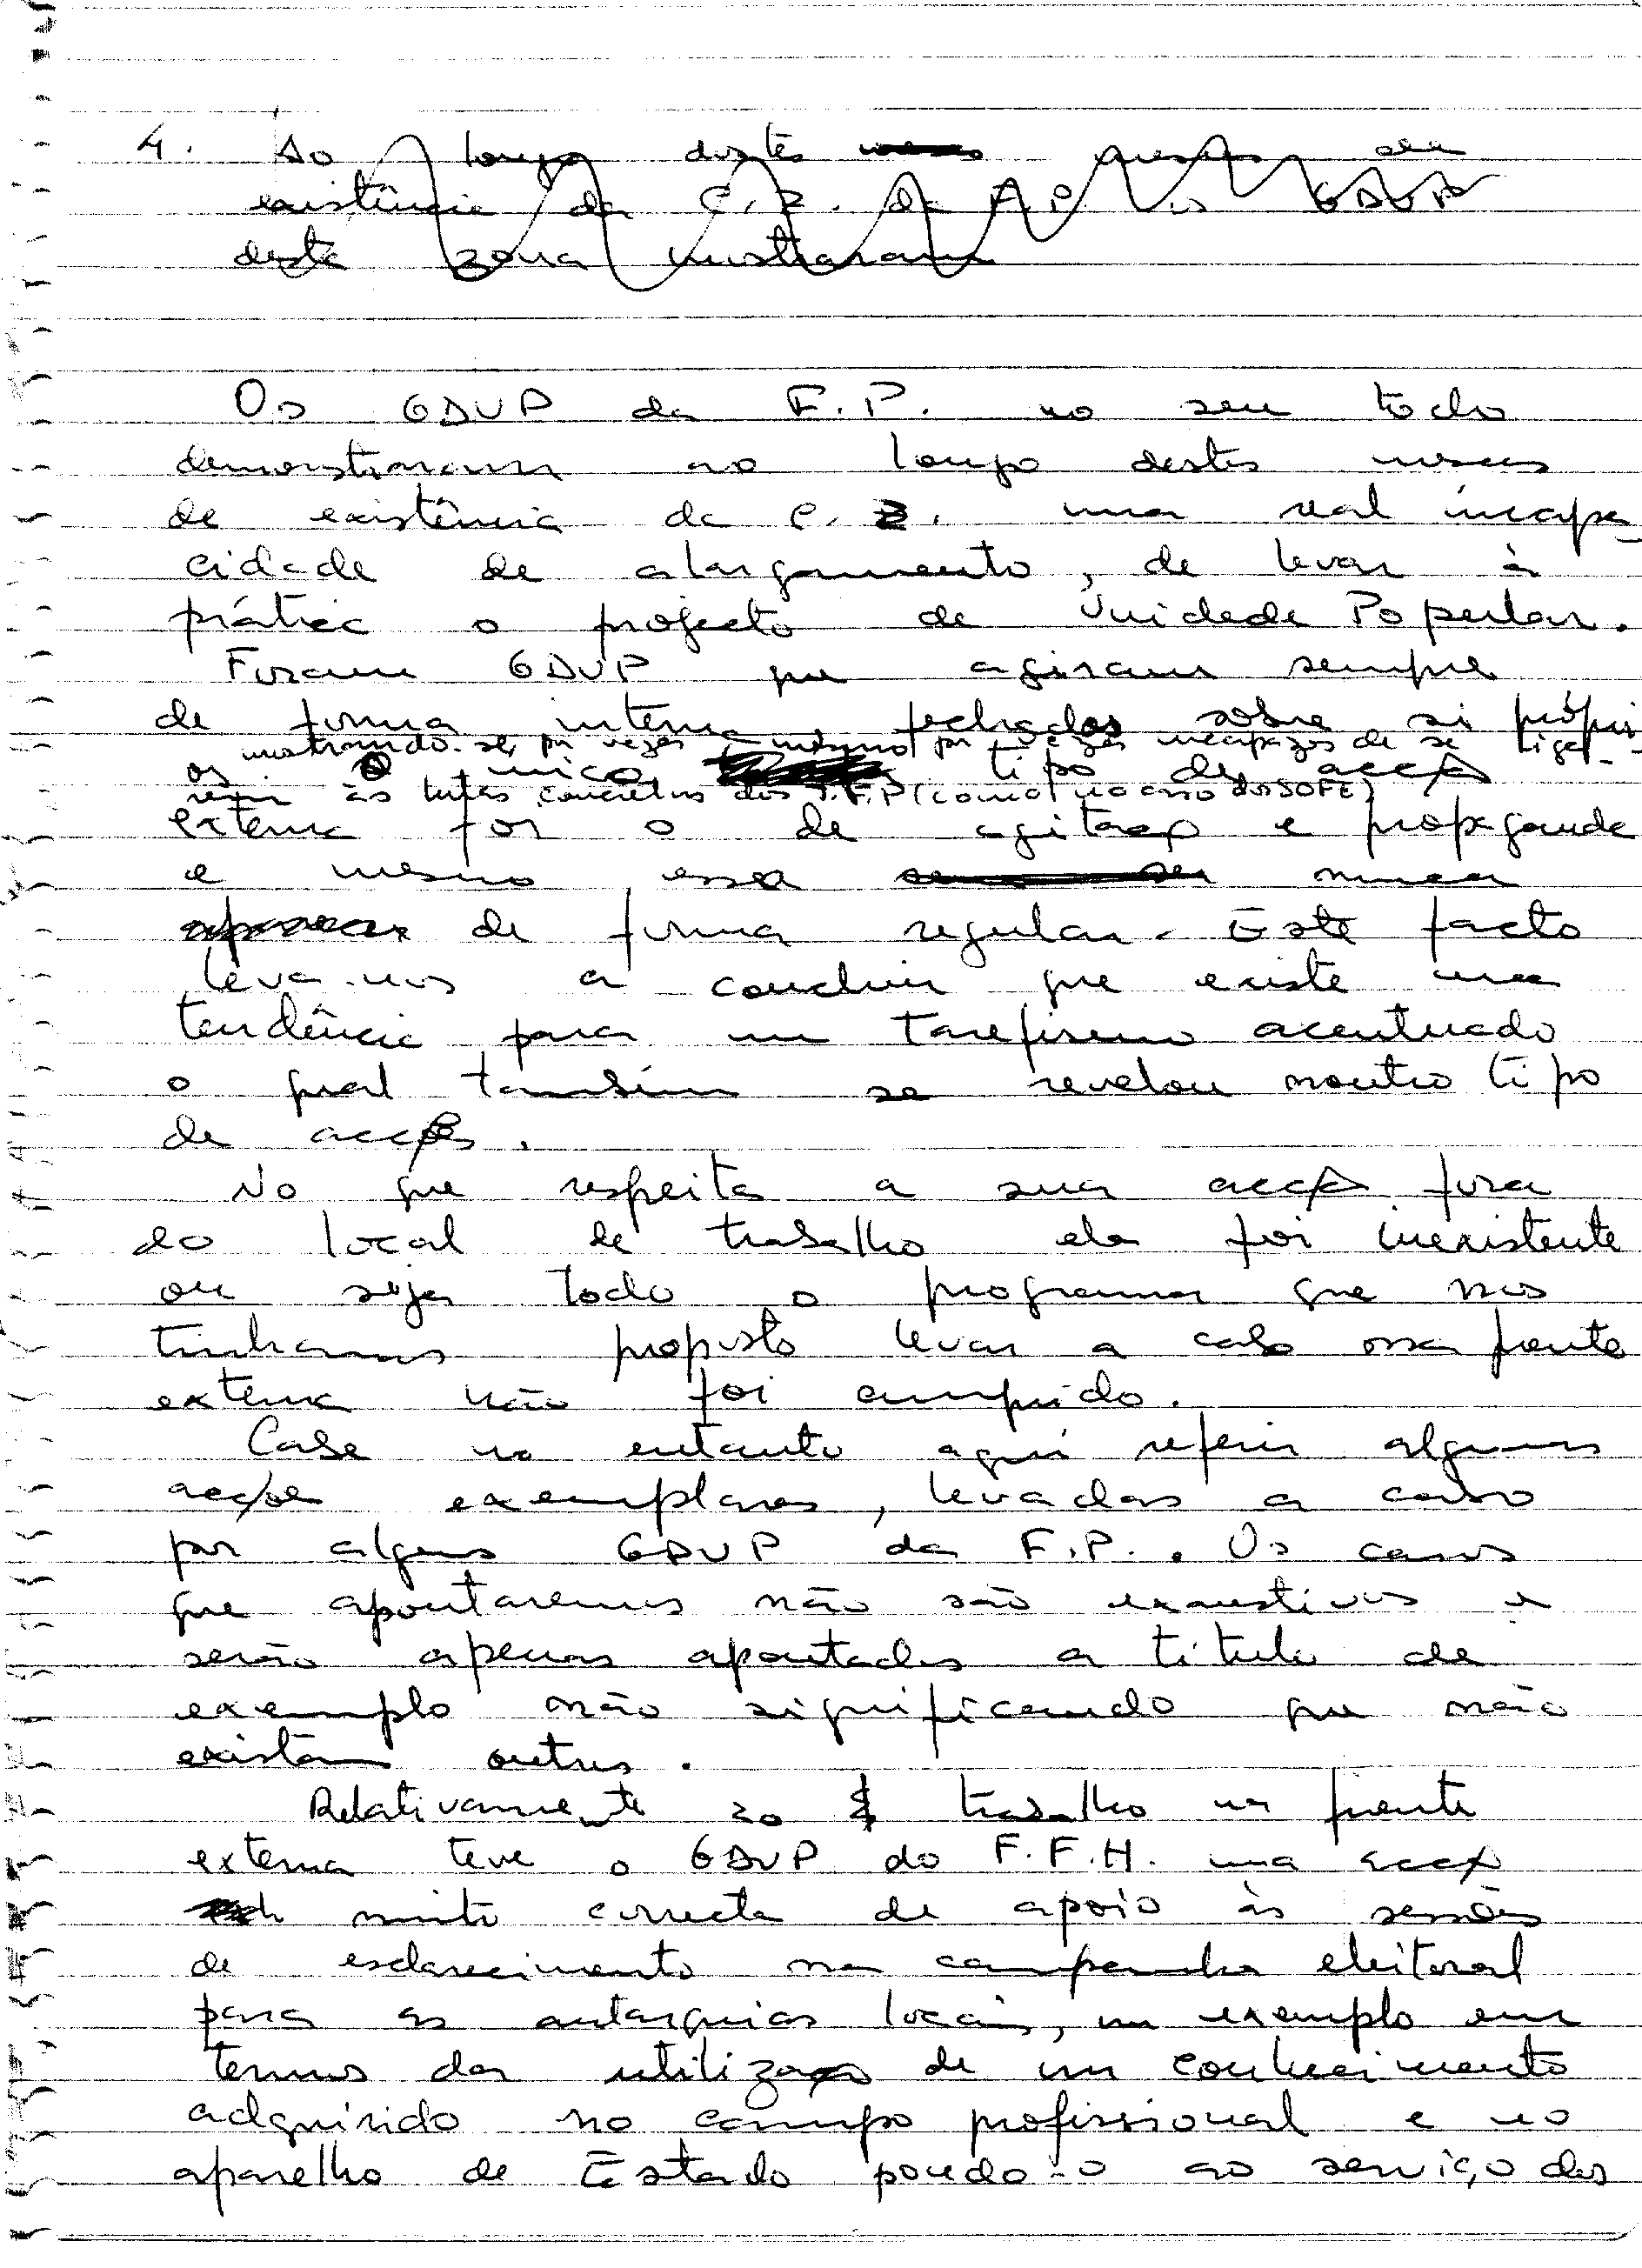 4. Ao longo destes meses de
existência da C.Z. da F.P. os GDUP
desta zona mostraram
Os GDUP da F.P. no seu todo
demonstraram ao longo destes meses
de existência da C.Z. uma real incapa-
cidade de alargamento, de levar à
prática o projecto de Unidade Popular.
Foram GDUP que agiram sempre
de forma interna, fechados sobre si própri
mostrando-se, por vezes, mesmo por vezes incapazes de se liga-
os. O único tipo de acção
rem às lutas concretas dos T.F.P (como no caso da SOFE)
externa foi o de agitação e propaganda
e mesmo essa nunca
de forma regular. Este facto
leva-nos a concluir que existe uma
tendência para um tarefismo acentuado
o qual também se revelou noutro tipo
de acções.
No que respeita a sua acção fora
do local de trabalho ela foi inexistente
ou seja todo o programa que nos
tinhamos proposto levar a cabo nessa frente
externa não foi cumprido.
Cabe no entanto aqui referir algumas
acções exemplares, levadas a cabo
por alguns GDUP da F.P.. Os casos
que apontaremos não são exaustivos e
serão apenas apontados a título de
exemplo não significando que não
existam outros.
Relativamente ao trabalho na frente
externa teve o GDUP do F.F.H. uma acção
muito correcta de apoio às sessões
de esclarecimento na campanha eleitoral
para as autarquias locais, um exemplo em
termos da utilização de um conhecimento
adquirido no campo profissional e no
aparelho de Estado pondo-o ao serviço das